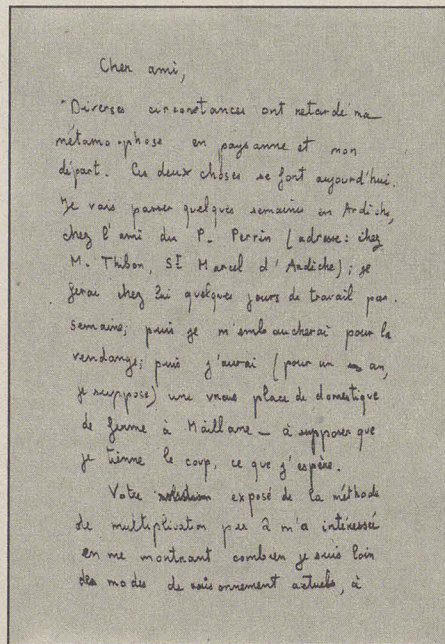 Cher ami,
Diverses circonstances ont retardé ma
métamorphose en paysanne et mon
départ. Ces deux choses se font aujourd'hui.
Je vais passer quelques semaines en Ardèche,
chez l'ami du P. Perrin (adresse: chez
M. Thibon, St Marcel d'Ardèche); je
ferai chez lui quelques jours de travail par
semaine; puis je m'embaucherai pour la
vendange; puis j'aurai (pour un an,
je suppose) une vraie place de domestique
de ferme à Maillane — à supposer que
je tienne le coup, ce que j'espère.
Votre exposé de la méthode
de multiplication par 2 m'a intéressée
en me montrant combien je suis loin
des modes de raisonnement actuels, à